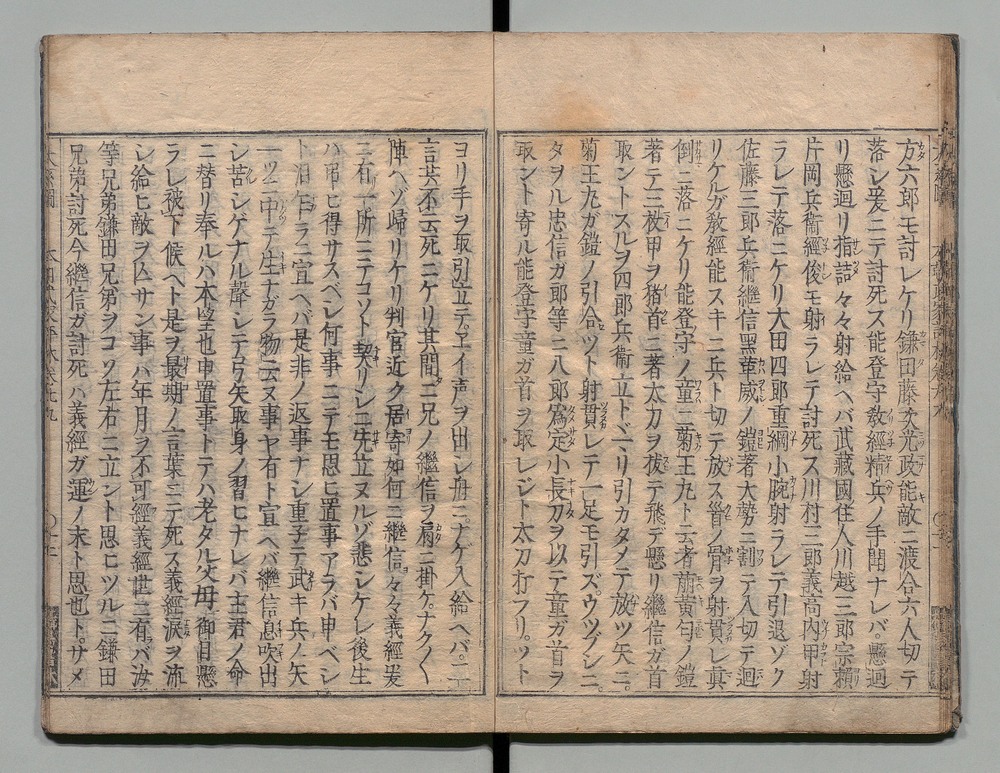 方六郎モ討レケリ鎌田藤次光政能敵ニ渡合六人切テ
落シ爰ニテ討死ス能登守教經精兵ノ手聞ナレバ懸迴
リ懸迴リ指詰々々射給ヘバ武藏國住人川越三郎宗頼
片岡兵衛經俊モ射ラレテ討死ス川村三郎義高内甲射
ラレテ落ニケリ大田四郎重綱小腕射ラレテ引退ゾク
佐藤三郎兵衛継信黑革威ノ鎧著大勢ニ割テ入切テ迴
リケルガ教經能スキニ兵ト切テ放ス胷ノ骨ヲ射貫レ眞
倒ニ落ニケリ能登守ノ童ニ菊王丸ト云者萠黄匂ノ鎧
著テ三枚甲ヲ猪首ニ著太刀ヲ抜テ飛デ懸リ継信ガ首
取ントスルヲ四郎兵衛立トヾマリ引カタメテ放ツ矢ニ
菊王丸ガ鎧ノ引合ツト射貫レテ一足モ引ズウツブシニ
タヲル忠信ガ郎等ニ八郎爲定小長刀ヲ以テ童ガ首ヲ
取ント寄ル能登守童ガ首ヲ取レジト太刀打フリツト
ヨリ手ヲ取引立テエイ声ヲ出シ舟ニナゲ入給ヘバ一
言共不云死ニケリ其間ニ兄ノ継信ヲ肩ニ掛ケナクく
陣ヘゾ歸リケリ判官近ク居寄如何ニ継信々々義經爰
ニ有一所ニテコソト契リシニ先立ヌルゾ悲シケレ後生
ハ弔ヒ得サスベシ何事ニテモ思ヒ置事アラバ申ベシ
ト宣ヘバ是非ノ返事ナシ重子テ武キ兵ノ矢
一ツニ中テ生ナガラ物云ヌ事ヤ有ト宣ヘバ継信息吹出
シ苦シゲナル聲シテ弓矢取身ノ習ヒナレバ主君ノ命
ニ替リ奉ルハ本望也申置事トテハ老タル父母御目懸
ラレ被下候ヘト是ヲ最期ノ言葉ニテ死ス義經涙ヲ流
シ給ヒ敵ヲ亡サン事ハ年月ヲ不可經義經世ニ有バ汝
等兄弟鎌田兄弟ヲコソ左右ニ立ント思ヒツルニ鎌田
兄弟討死今継信ガ討死ハ義經ガ運ノ末ト思也トサメ